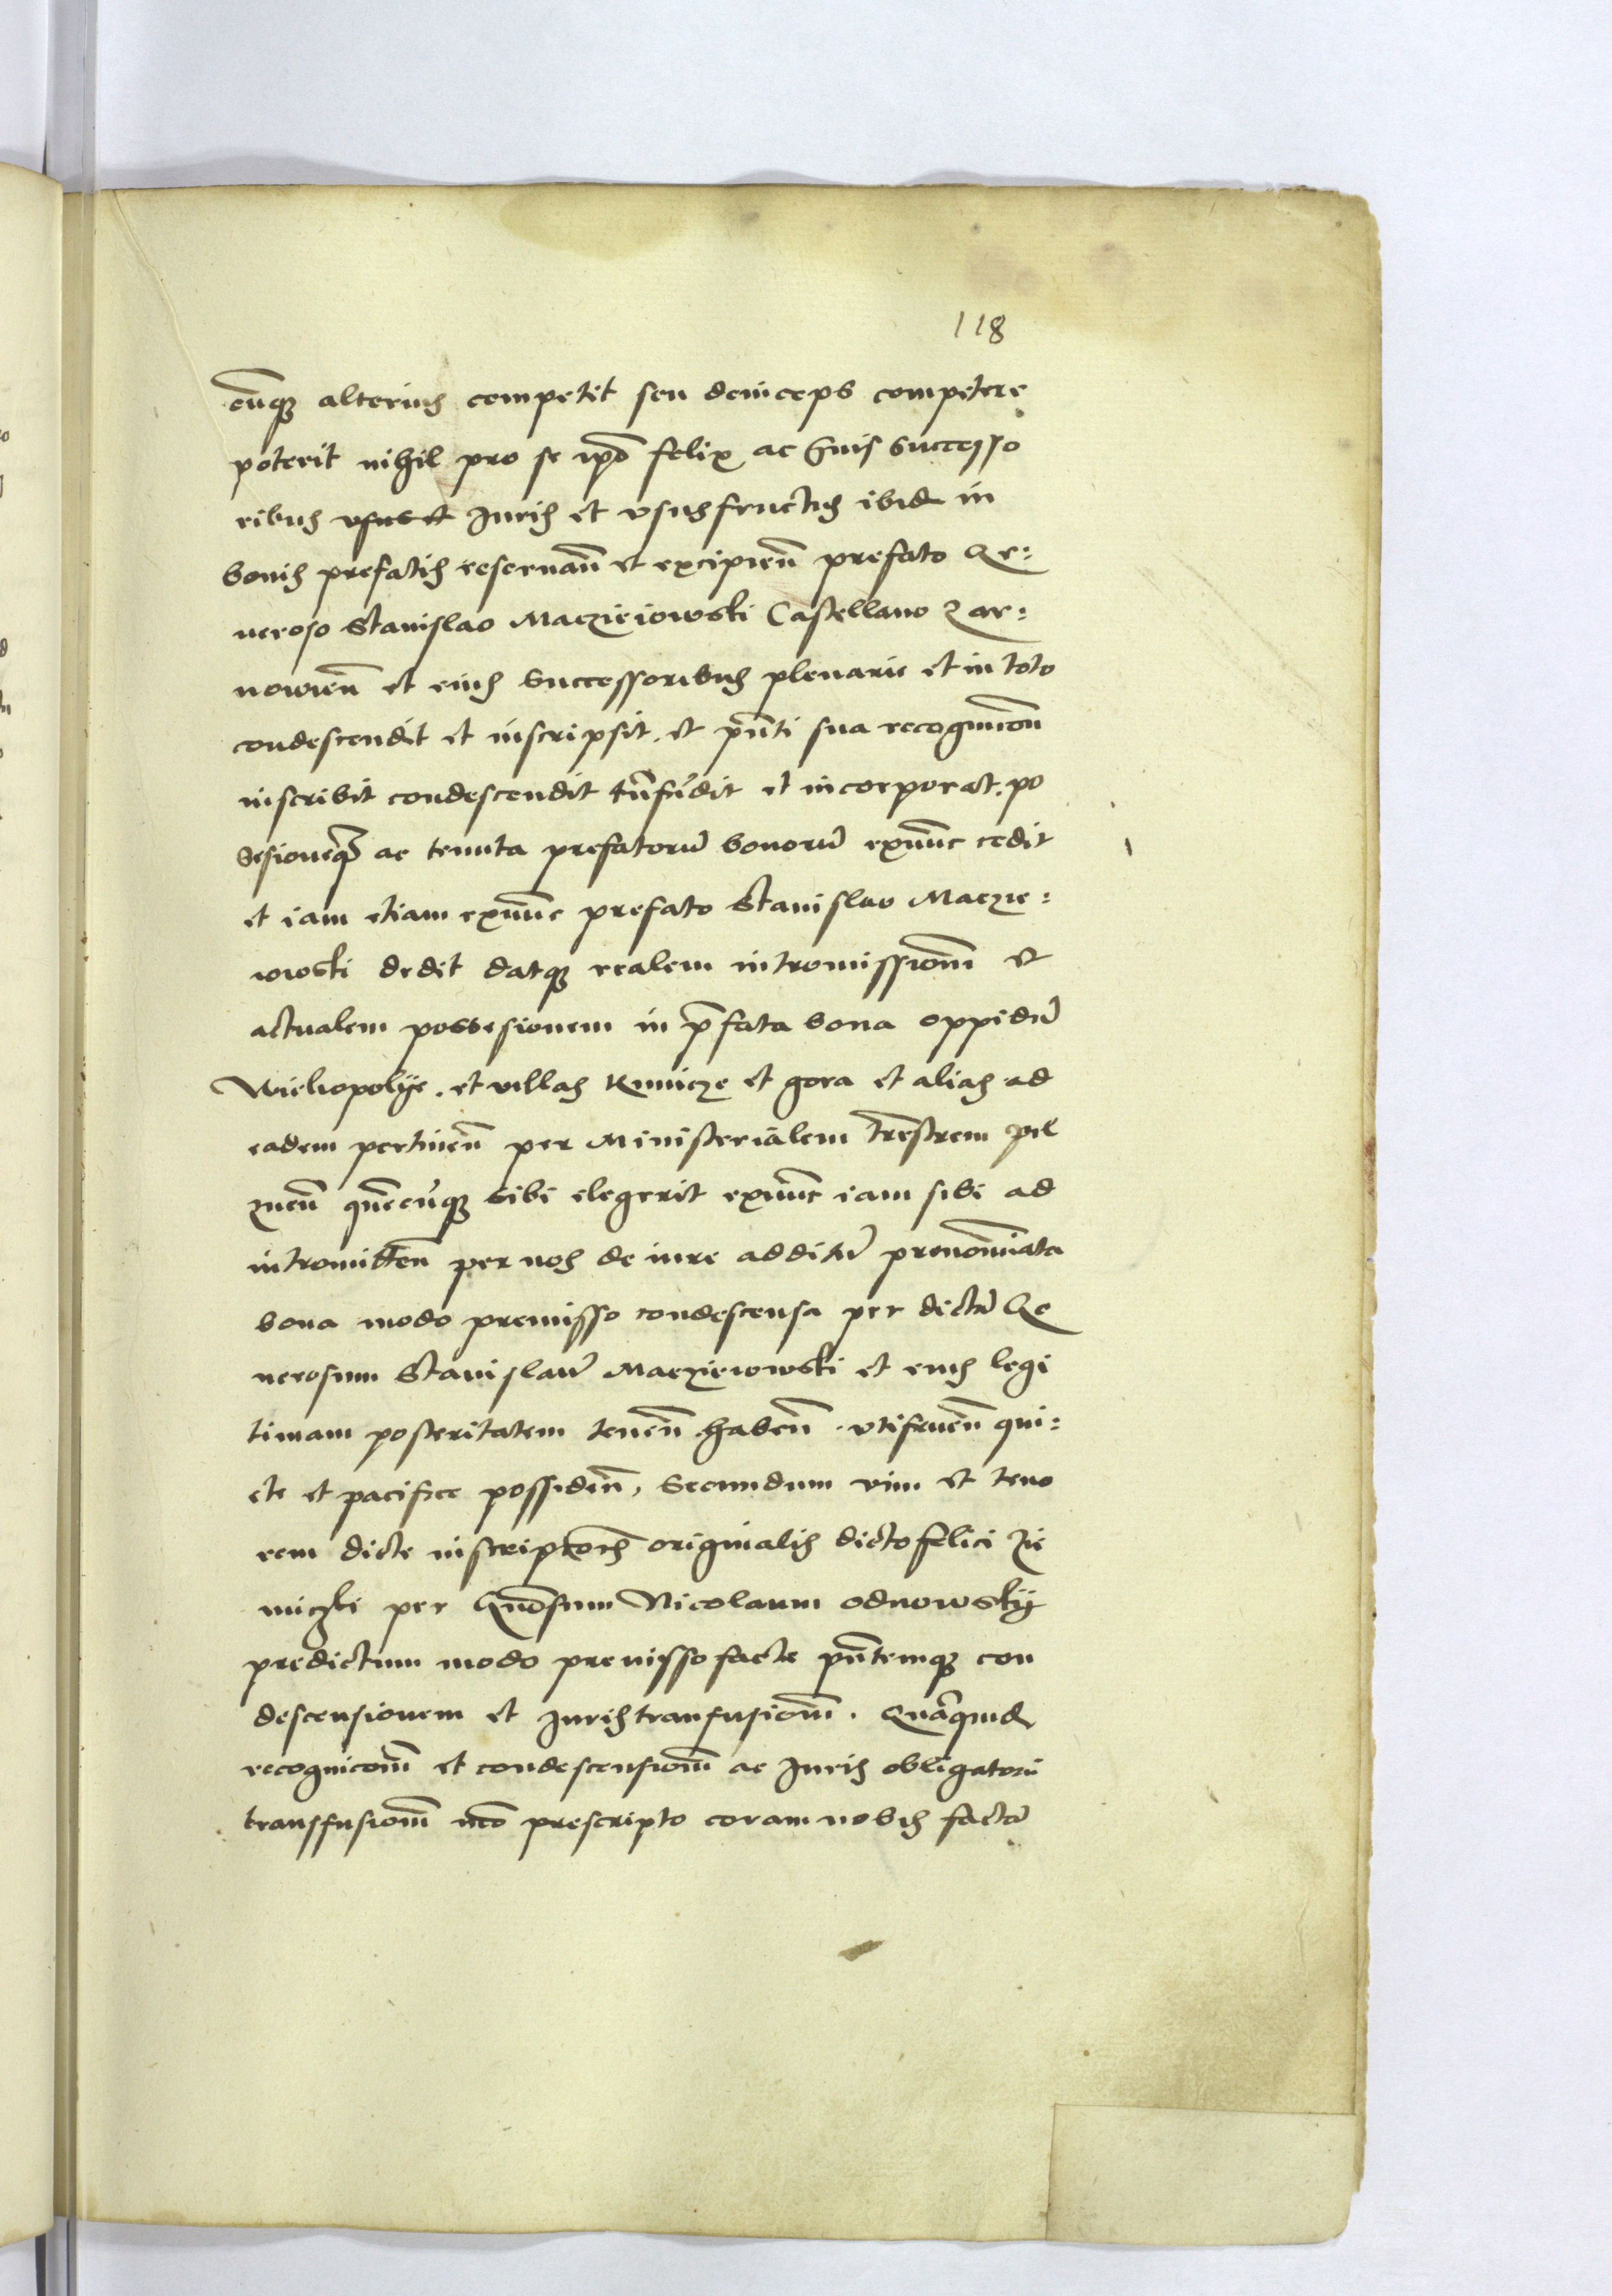 118
cunq(ue) alterius competit seu deinceps competere
poterit nihil pro se ip̄o felix ac suis successo
ribus Juris et ususfructus ibid in
bonis prefatis reservan̄ et excipien̄ prefato Ge:
neroso Stanislao Macziéiowski Castellano Zar:
nowien̄ et eius successoribus plenarie et in toto
condescendit et inscripsit. et pn̄ti sua recognicōn
inscribit condescendit trn̄fudit et incorporat. po
sesionēq(ue) ac tenuta prefatorū bonorū exnūnc cedit
et iam etiam exnūnc prefato Stanislao Maczie:
iowski dedit datq(ue) realem intromissionē et
actualem possesionem in p̄fata bona oppidū
Wielhopolÿe. et villas Kunicze et gora et alias ad
eadem pertinen̄ per Ministerialem trēstrem pil
znen̄ quēcūq(ue) sibi elegerit exnūnc iam sibi ad
intromitten̄ per nos de iure additū prenoīnata
bona modo premisso condescensa per dictū Ge
nerosum Stanislaū Macziéiowski et eius legi
timam posteritatem tenen̄ haben̄ . utifruen̄ qui:
ete et pacifice possiden̄, secundum vim et teno
rem dicte inscriptōis originalis dicto felici Zie
miczki per Gn̄osum Nicolaum odnowskÿ
predictum modo premisso facte pn̄temq(ue) con
descensionem et Juris tranfusionē. Quāquid
recognicōnē et condescensionē ac Juris obligatorii
transfusionē mō prescripto coram nobis factā